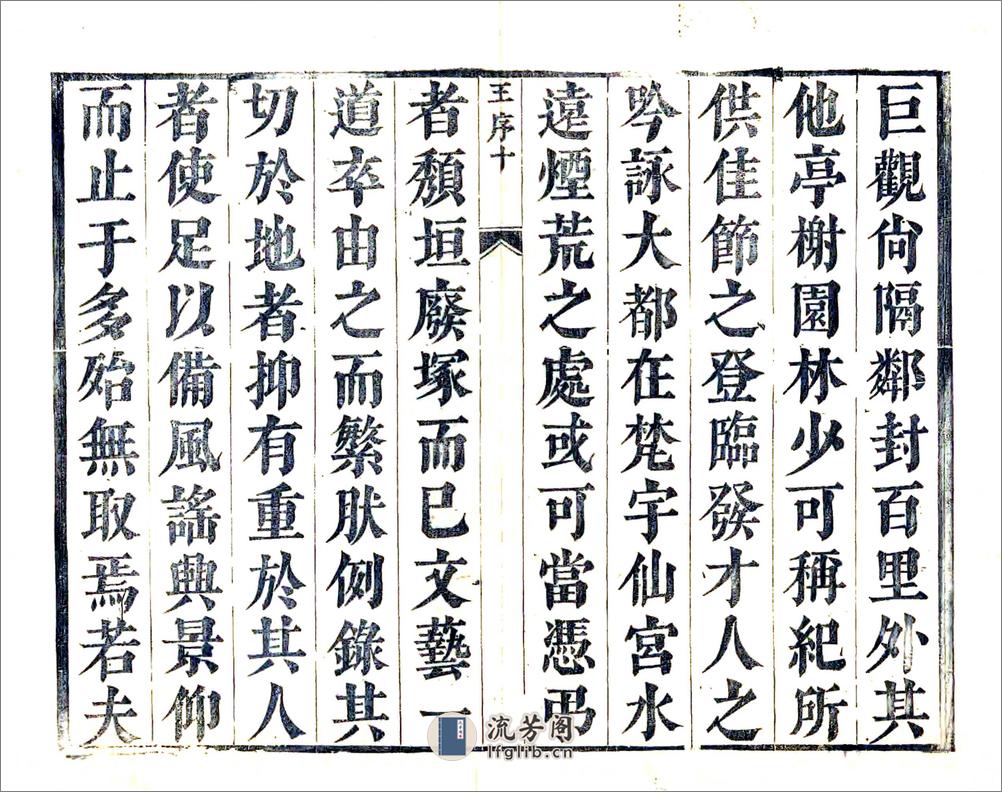 巨觀尙隔鄰封百里外其
他亭榭園林少可稱紀所
供佳節之登臨發才人之
吟詠大都在梵宇仙宮水
遠煙荒之處或可當憑弔
王序十
者頽垣廢塚而已文藝一
道卒由之而繁肤例錄其
切於地者抑有重於其人
者使足以備風謠興景仰
而止于多殆無取焉若夫
流芳阁
lfglib.cn